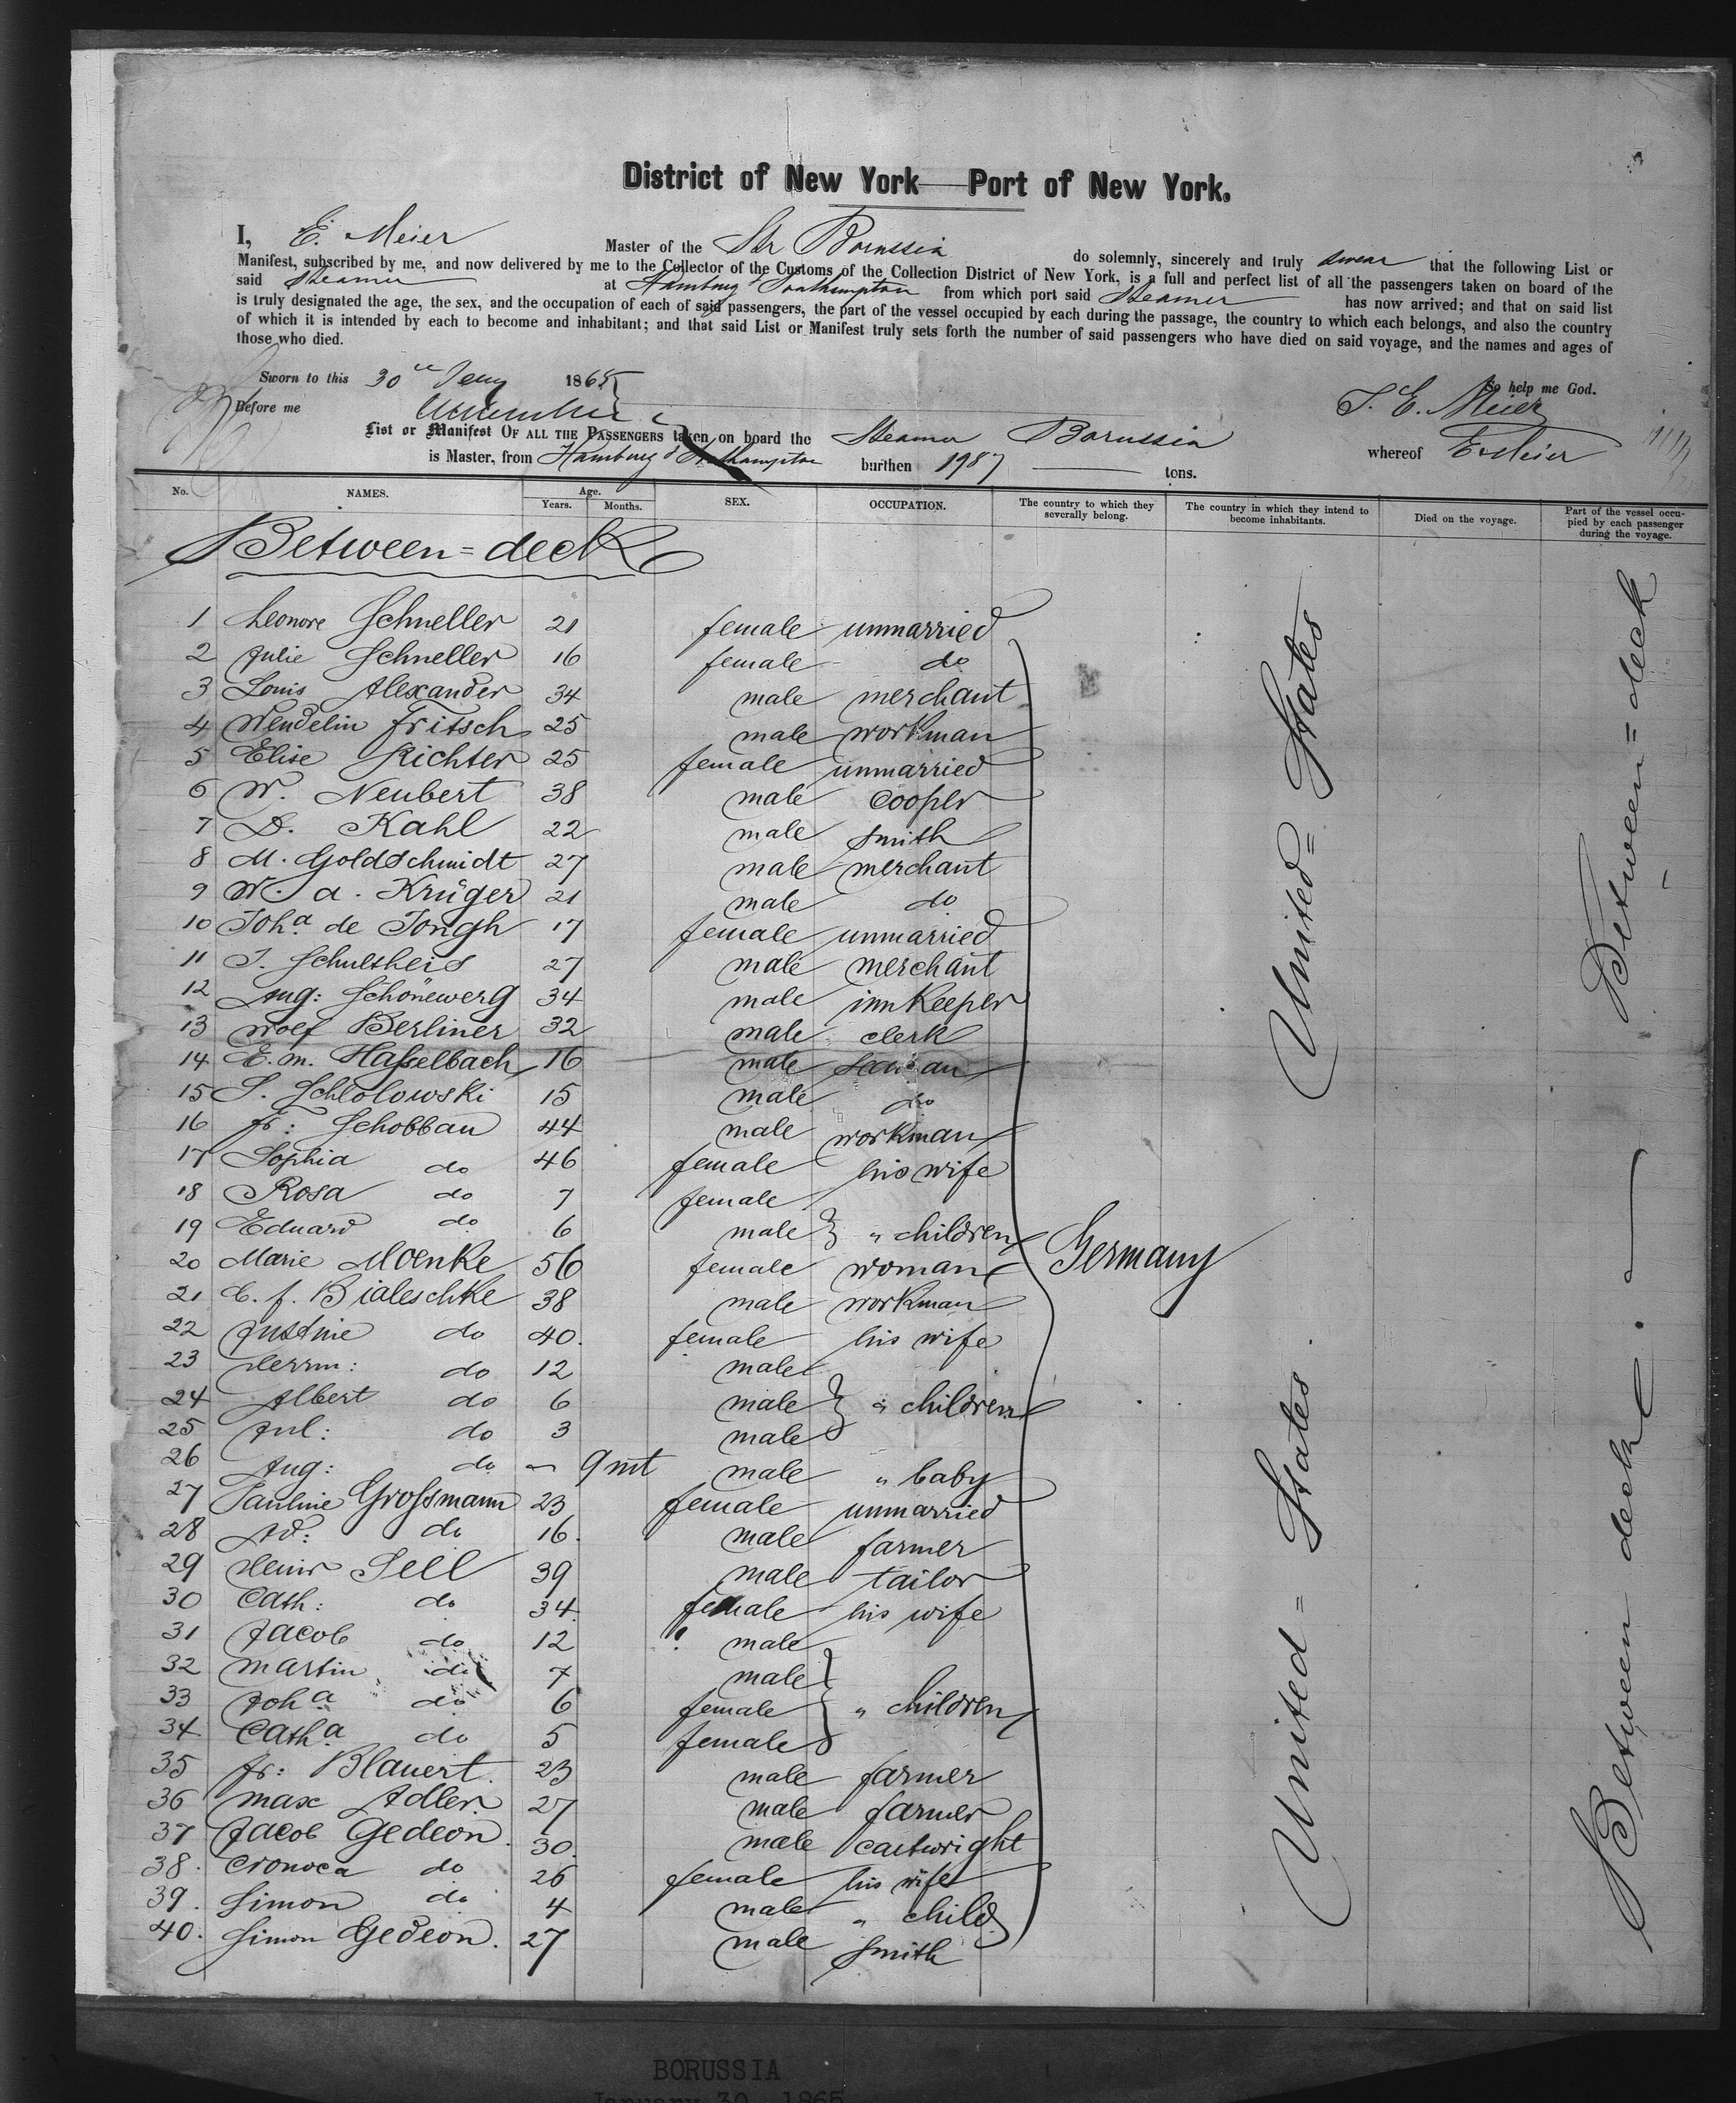 District of New York—Port of New York.
I, E. Meier Master of the Str Borussia do solemnly, sincerely and truly swear that the following List or
Manifest, subscribed by me, and now delivered by me to the Collector of the Customs of the Collection District of New York, is a full and perfect list of all the passengers taken on board of the
said Steamer at Hamburg & Southampton from which port said Steamer has now arrived; and that on said list
is truly designated the age, the sex, and the occupation of each of said passengers, the part of the vessel occupied by each during the passage, the country to which each belongs, and also the country
of which it is intended by each to become and inhabitant; and that said List or Manifest truly sets forth the number of said passengers who have died on said voyage, and the names and ages of
those who died.
Sworn to this 30 1865 So help me God.
Before me E. Meier
List or Manifest OF ALL THE PASSENGERS taken on board the Steamer Borussia whereof E. Meier
is Master, from Hamburg & Southampton burthen 1987 tons.
No. NAMES. Age. Years. Months. SEX. OCCUPATION. The country to which they severally belong. The country in which they intend to become inhabitants. Died on the voyage. Part of the vessel occupied by each passenger during the voyage.
Between=deck
1 Leonore Schneller 21 female unmarried
2 Julie Schneller 16 female do
3 Louis Alexander 34 male merchant
4 Wendelin Fritsch 25 male workman
5 Elise Richter 25 female unmarried
6 W. Neubert 38 male cooper
7 D. Kahl 22 male smith
8 M. Goldschmidt 27 male merchant
9 W. A. Krüger 21 male do
10 Joh.a de Jongh 17 female unmarried
11 J. Schultheis 27 male merchant
12 Aug: Schönewerg 34 male innkeeper
13 Wolf Berliner 32 male clerk
14 E. M. Hasselbach 16 male seaman
15 S. Schlolowski 15 male do
16 Fr: Schobbau 44 male workman
17 Sophia do 46 female his wife
18 Rosa do 7 female
19 Eduard do 6 male } " children
20 Marie Moenke 56 female woman
21 C. F. Bialeschke 38 male workman
22 Justine do 40. female his wife
23 Herrm: do 12 male
24 Albert do 6 male } " children
25 Jul: do 3 male
26 Aug: do — 9 mt male " baby
27 Pauline Grossmann 23 female unmarried
28 Ad: do 16. male farmer
29 Heinr Sell 39 male tailor
30 Cath: do 34 female his wife
31 Jacob do 12 male
32 Martin do 7 male
33 Joh.a do 6 female } " children
34 Cath.a do 5 female
35 Fr: Blauert. 23 male farmer
36 Max Adler. 27 male farmer
37 Jacob Gedeon. 30. male cartwright
38. Cronoca do 26 female his wife
39. Simon do 4 male " child
40. Simon Gedeon. 27 male smith
Germany
United= States
United= States
Between=deck
Between deck.
BORUSSIA
January 30, 1865